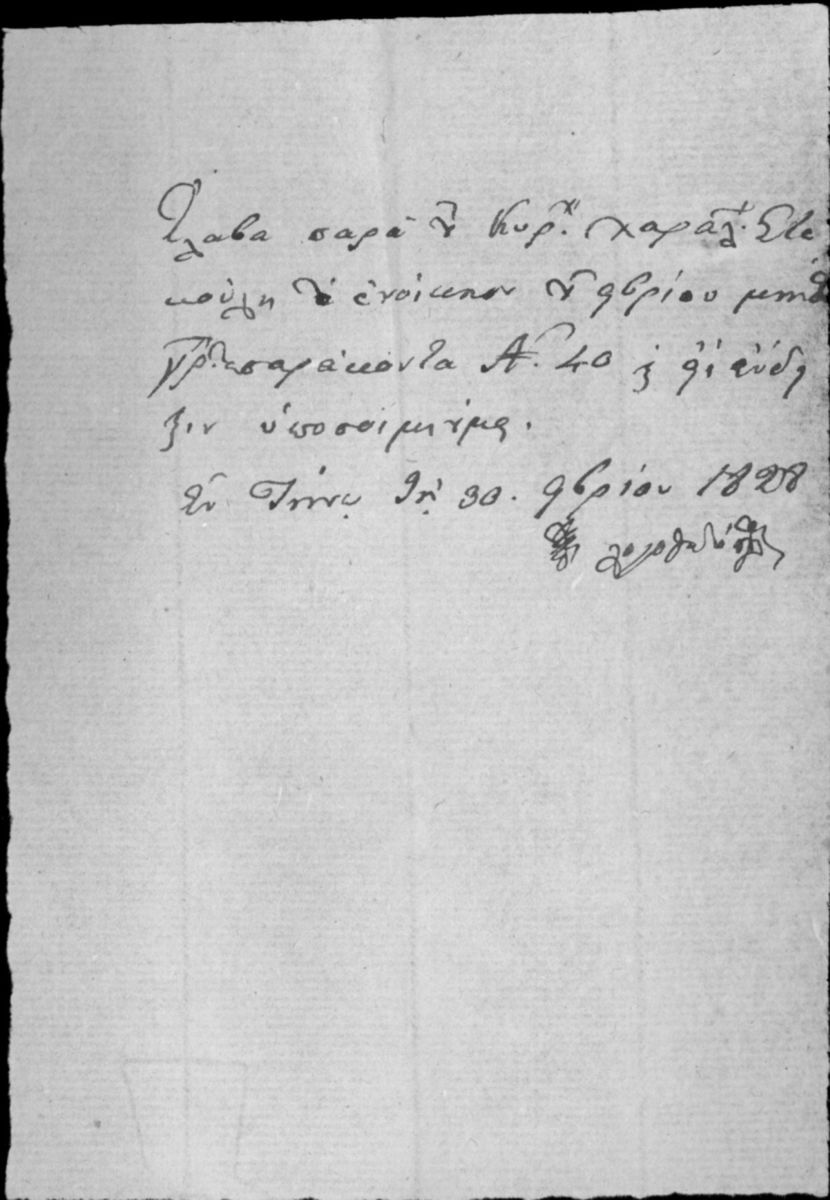 Ἔλαβα παρὰ τοῦ Κυρ. χαραλ. Στε
κούλη τὸ ἐνοίκιον τοῦ 9βρίου μηνὸς
γρ. τεσαράκοντα Ἀρ. 40 καὶ εἰς ἔνδει
ξιν ὑποσημειοῦμαι.
Ἐν Τήνῳ τῇ 30. 9βρίου 1828